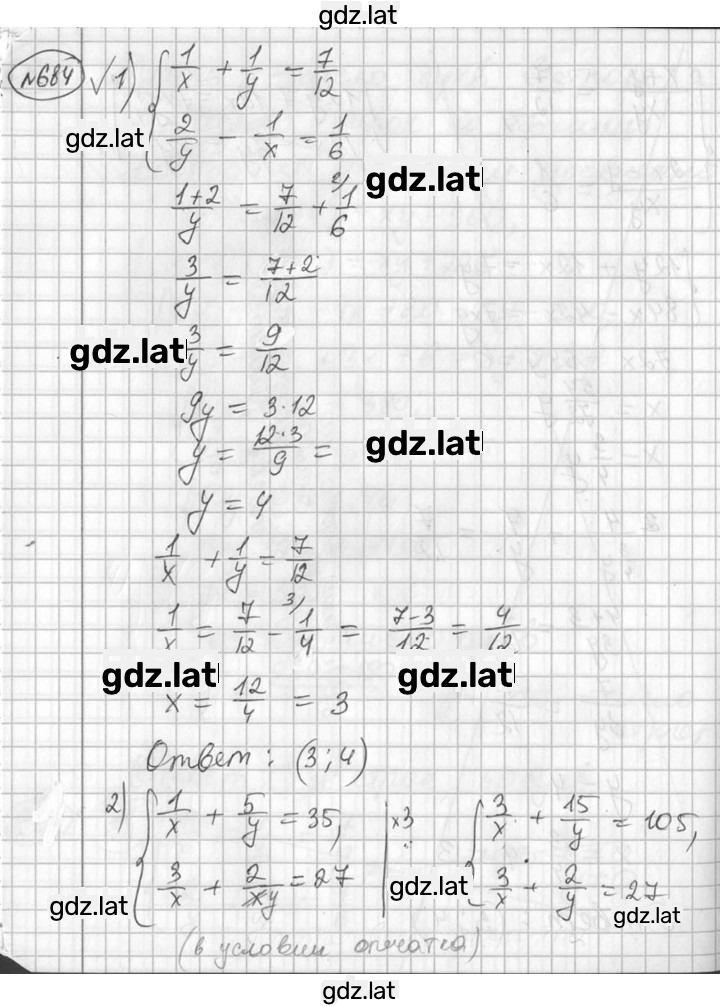 gdz.lat
№684 √ 1) { 1/x + 1/y = 7/12
gdz.lat { 2/y - 1/x = 1/6
gdz.lat
(1+2)/y = 7/12 + 2) 1/6
3/y = (7+2)/12
gdz.lat 3/y = 9/12
9y = 3·12
y = (12·3)/9 = gdz.lat
y = 4
1/x + 1/y = 7/12
1/x = 7/12 - 3) 1/4 = (7-3)/12 = 4/12
gdz.lat gdz.lat
x = 12/4 = 3
Ответ: (3; 4)
2) { 1/x + 5/y = 35, | x3 { 3/x + 15/y = 105,
{ 3/x + 2/xy = 27 | { 3/x + 2/y = 27
gdz.lat gdz.lat gdz.lat
(в условии опечатка)
gdz.lat